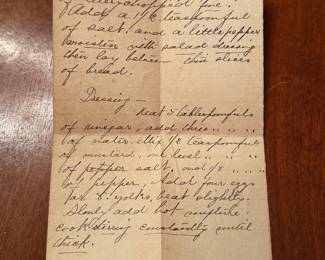 of celery chopped fine.
Add a 1/2 teaspoonful
of salt, and a little pepper
moisten with salad dressing
then lay between thin slices
of bread.
Dressing —
Heat 5 tablespoonfuls
of vinegar, add three " " "
of water Mix 1/2 teaspoonful
of mustard, one level " "
of salt, and 1/8 "
of pepper, Add four eggs
or 8 yolks, beat slightly.
Slowly add hot mixture.
cook stirring constantly until
thick.